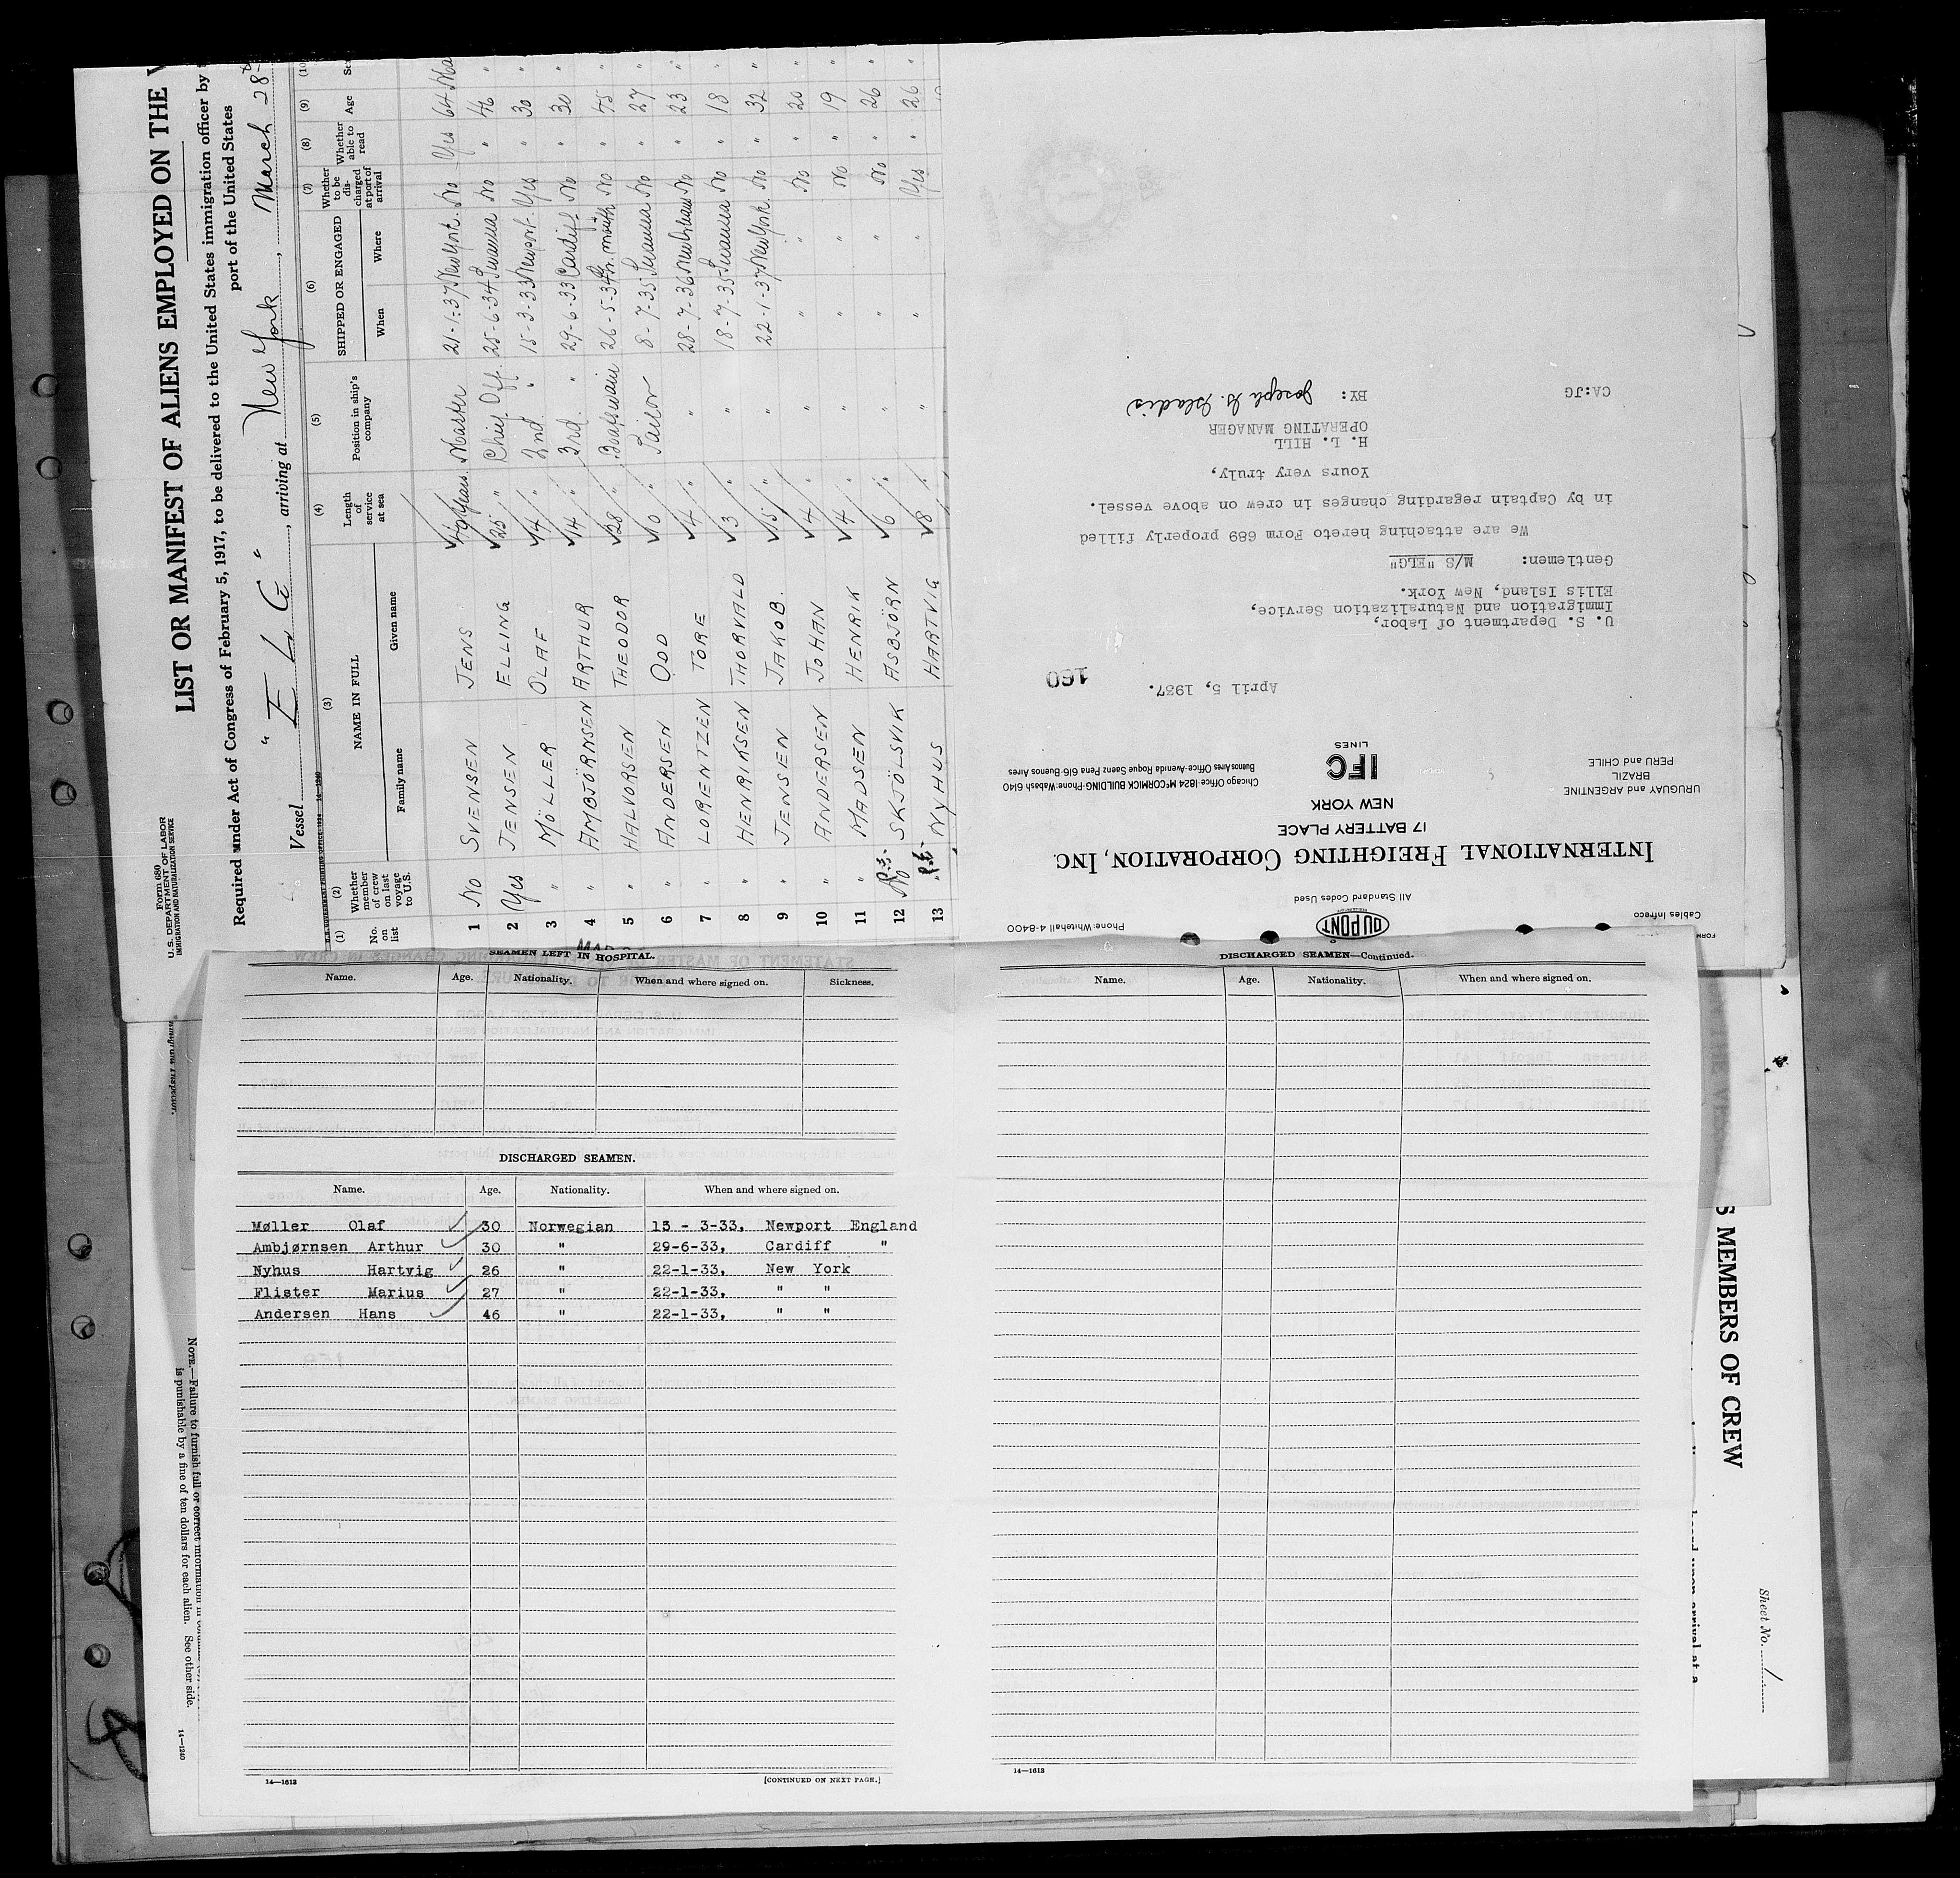 Form 680
U. S. DEPARTMENT OF LABOR
IMMIGRATION AND NATURALIZATION SERVICE
LIST OR MANIFEST OF ALIENS EMPLOYED ON THE
Required under Act of Congress of February 5, 1917, to be delivered to the United States immigration officer by
port of the United States
Vessel "ELG", arriving at New York, March 28th
U. S. GOVERNMENT PRINTING OFFICE: 1934 14—1240
(1) (2) (3) (4) (5) (6) (7) (8) (9) (10)
No. on list Whether member of crew on last voyage to U.S. NAME IN FULL Family name Given name Length of service at sea Position in ship's company SHIPPED OR ENGAGED When Where Whether to be discharged at port of arrival Whether able to read Age
1 No SVENSEN JENS Years Master 21-1-37 New York. No Yes 64
2 Yes JENSEN ELLING 25 " Chief Off. 25-6-34 Swansea No " 46 "
3 " MÖLLER OLAF 14 " 2nd " 15-3-33 Newport. Yes " 30 "
4 " AMBJÖRNSEN ARTHUR 14 " 3rd " 29-6-33 Cardiff No " 30 "
5 " HALVORSEN THEODOR 28 " Boatswain 26-5-34 No " 45 "
6 " ANDERSEN ODD 10 " Sailor 8-7-35 Swansea No " 27 "
7 " LORENTZEN TORE 4 " " 28-7-36 No " 23 "
8 " HENRIKSEN THORVALD 3 " " 18-7-35 Swansea No " 18 "
9 " JENSEN JAKOB. 15 " " 22-1-37 New York. No " 32 "
10 " ANDERSEN JOHAN 4 " " " " No " 20 "
11 " MADSEN HENRIK 4 " " " " No " 19 "
12 No SKJÖLSVIK ASBJÖRN 6 " " " " No " 26 "
13 " NYHUS HARTVIG 8 " " " " Yes " 26 "
Cables Infreco
DU PONT
Phone: Whitehall 4-8400
All Standard Codes Used
INTERNATIONAL FREIGHTING CORPORATION, INC.
17 BATTERY PLACE
NEW YORK
URUGUAY and ARGENTINE
BRAZIL
PERU and CHILE
IFC
LINES
Chicago Office-1824 McCORMICK BUILDING-Phone: Wabash 6140
Buenos Aires Office-Avenida Roque Saenz Pena 616-Buenos Aires
April 5, 1937.
160
U. S. Department of Labor,
Immigration and Naturalization Service,
Ellis Island, New York.
Gentlemen: M/S "ELG"
We are attaching hereto Form 689 properly filled
in by Captain regarding changes in crew on above vessel.
Yours very truly,
H. L. HILL
OPERATING MANAGER
BY:
CA:JG
SEAMEN LEFT IN HOSPITAL.
Name. Age. Nationality. When and where signed on. Sickness.
DISCHARGED SEAMEN.
Name. Age. Nationality. When and where signed on.
Møller Olaf 30 Norwegian 15 - 3-33, Newport England
Ambjørnsen Arthur 30 " 29-6-33, Cardiff "
Nyhus Hartvig 26 " 22-1-33, New York
Flister Marius 27 " 22-1-33, " "
Andersen Hans 46 " 22-1-33, " "
14—1613
[CONTINUED ON NEXT PAGE.]
DISCHARGED SEAMEN—Continued.
Name. Age. Nationality. When and where signed on.
14—1613
NOTE.—Failure to furnish full or correct information in
is punishable by a fine of ten dollars for each alien. See other side.
14—1240
MEMBERS OF CREW
upon arrival at a
Sheet No. 1